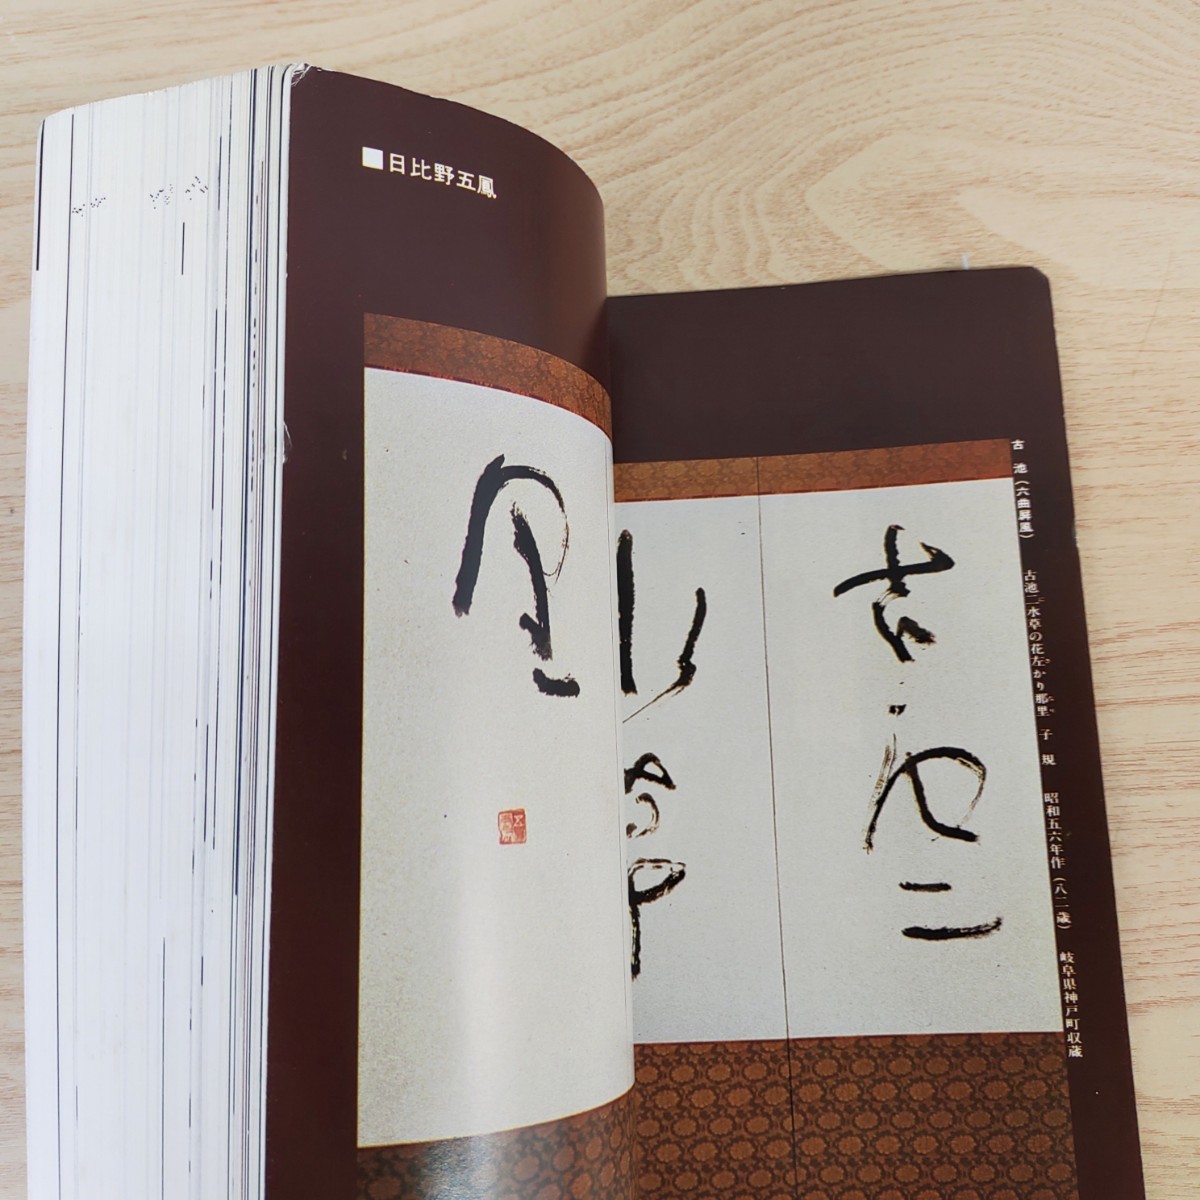 ■日比野五鳳
古池(六曲屏風) 古池ニ水草の花左かり那里 子規 昭和五六年作(八二歳) 岐阜県神戸町収蔵
古池二
水草
里